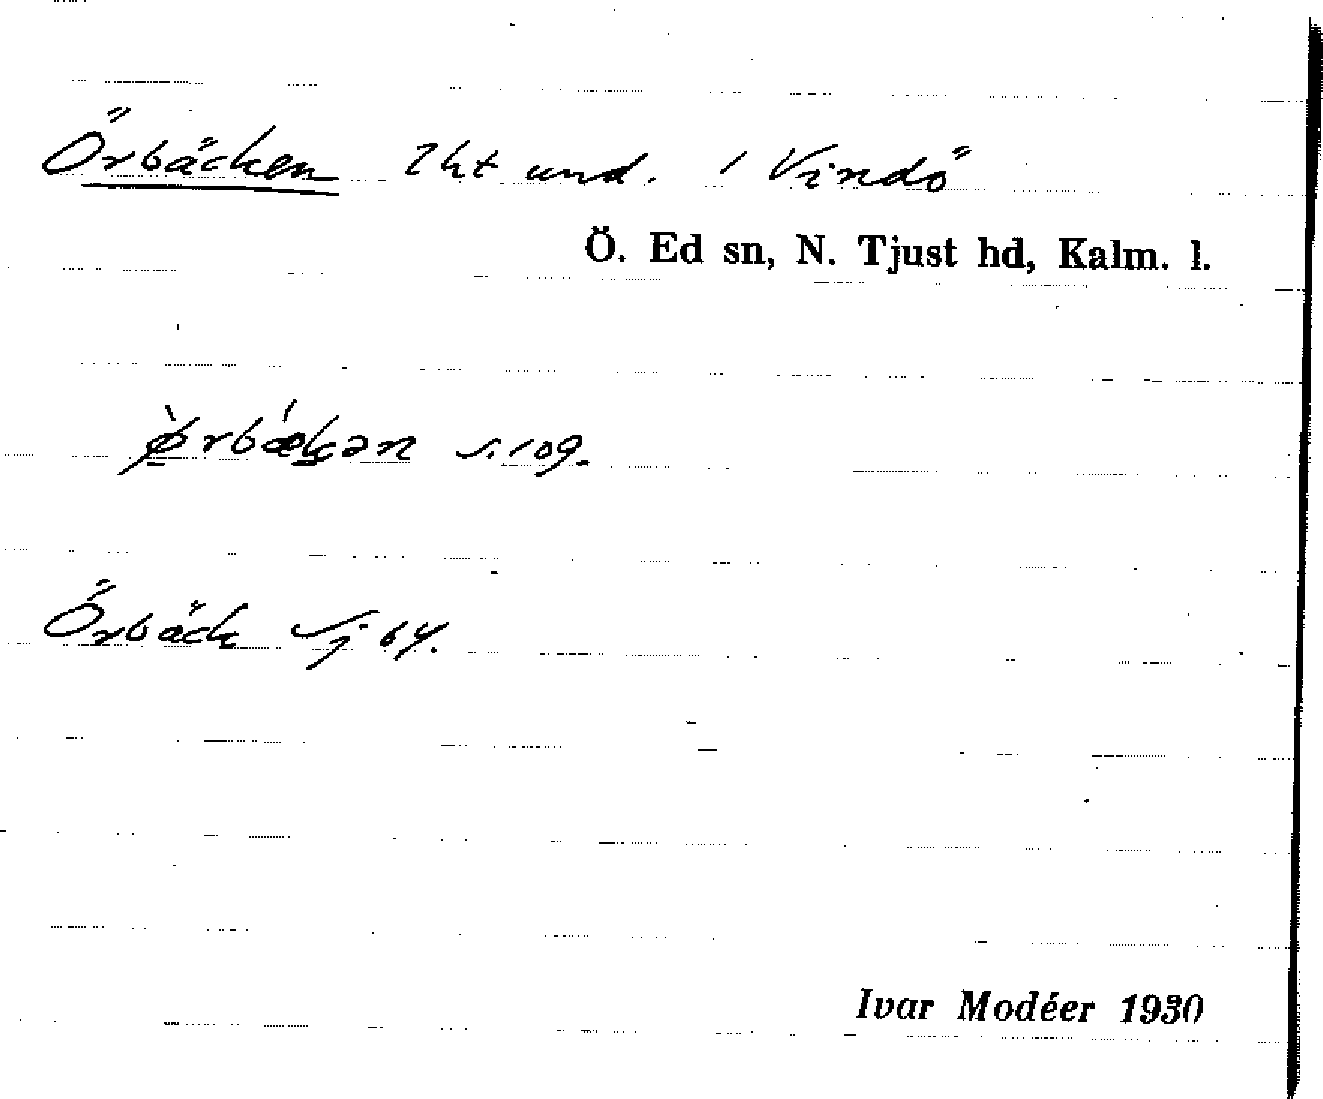 Örbäcken lht und. 1 Vindö
Ö. Ed sn, N. Tjust hd, Kalm. l.
ǿrbæ̀kən s. 109.
Örbäck Sj 64.
Ivar Modéer 1930